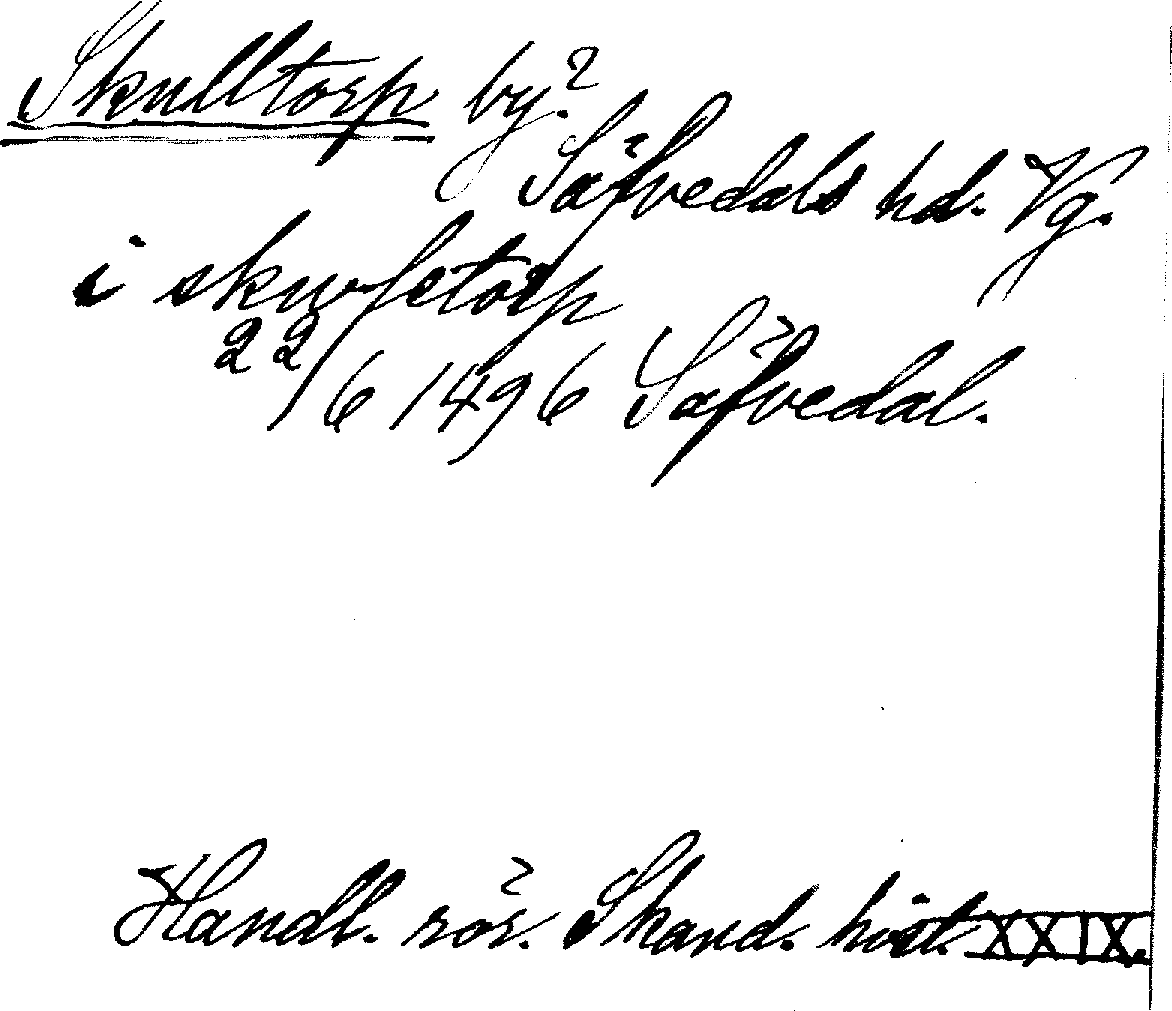 Skulltorp by?
Säfvedals hd. Vg.
i skwfletorp
22/6 1496 Säfvedal.
Handl. rör. Skand. hist. XXIX.